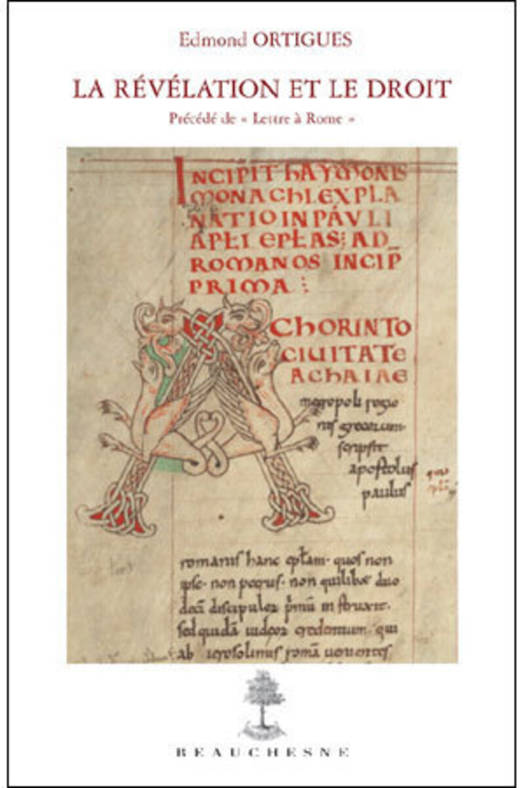 Edmond ORTIGUES
LA RÉVÉLATION ET LE DROIT
Précédé de « Lettre à Rome »
INCIPIT hAYMONIS
MONACHI EXPLA
NATIO IN PAVLI
APŁI EPŁAS; AD
ROMANOS INCIP̄
PRIMA
A CHORINTO
CIUITATE
AChAIAE
metropoli regio
nis grecorum
scripsit
apostolus
paulus
romanis hanc epłam. quos non
ipse. non petrus. non quilibet duo
deci discipulos primū instruxit.
sed quidā iudeor credentium. qui
ab ierosolimis romā uenientes
BEAUCHESNE